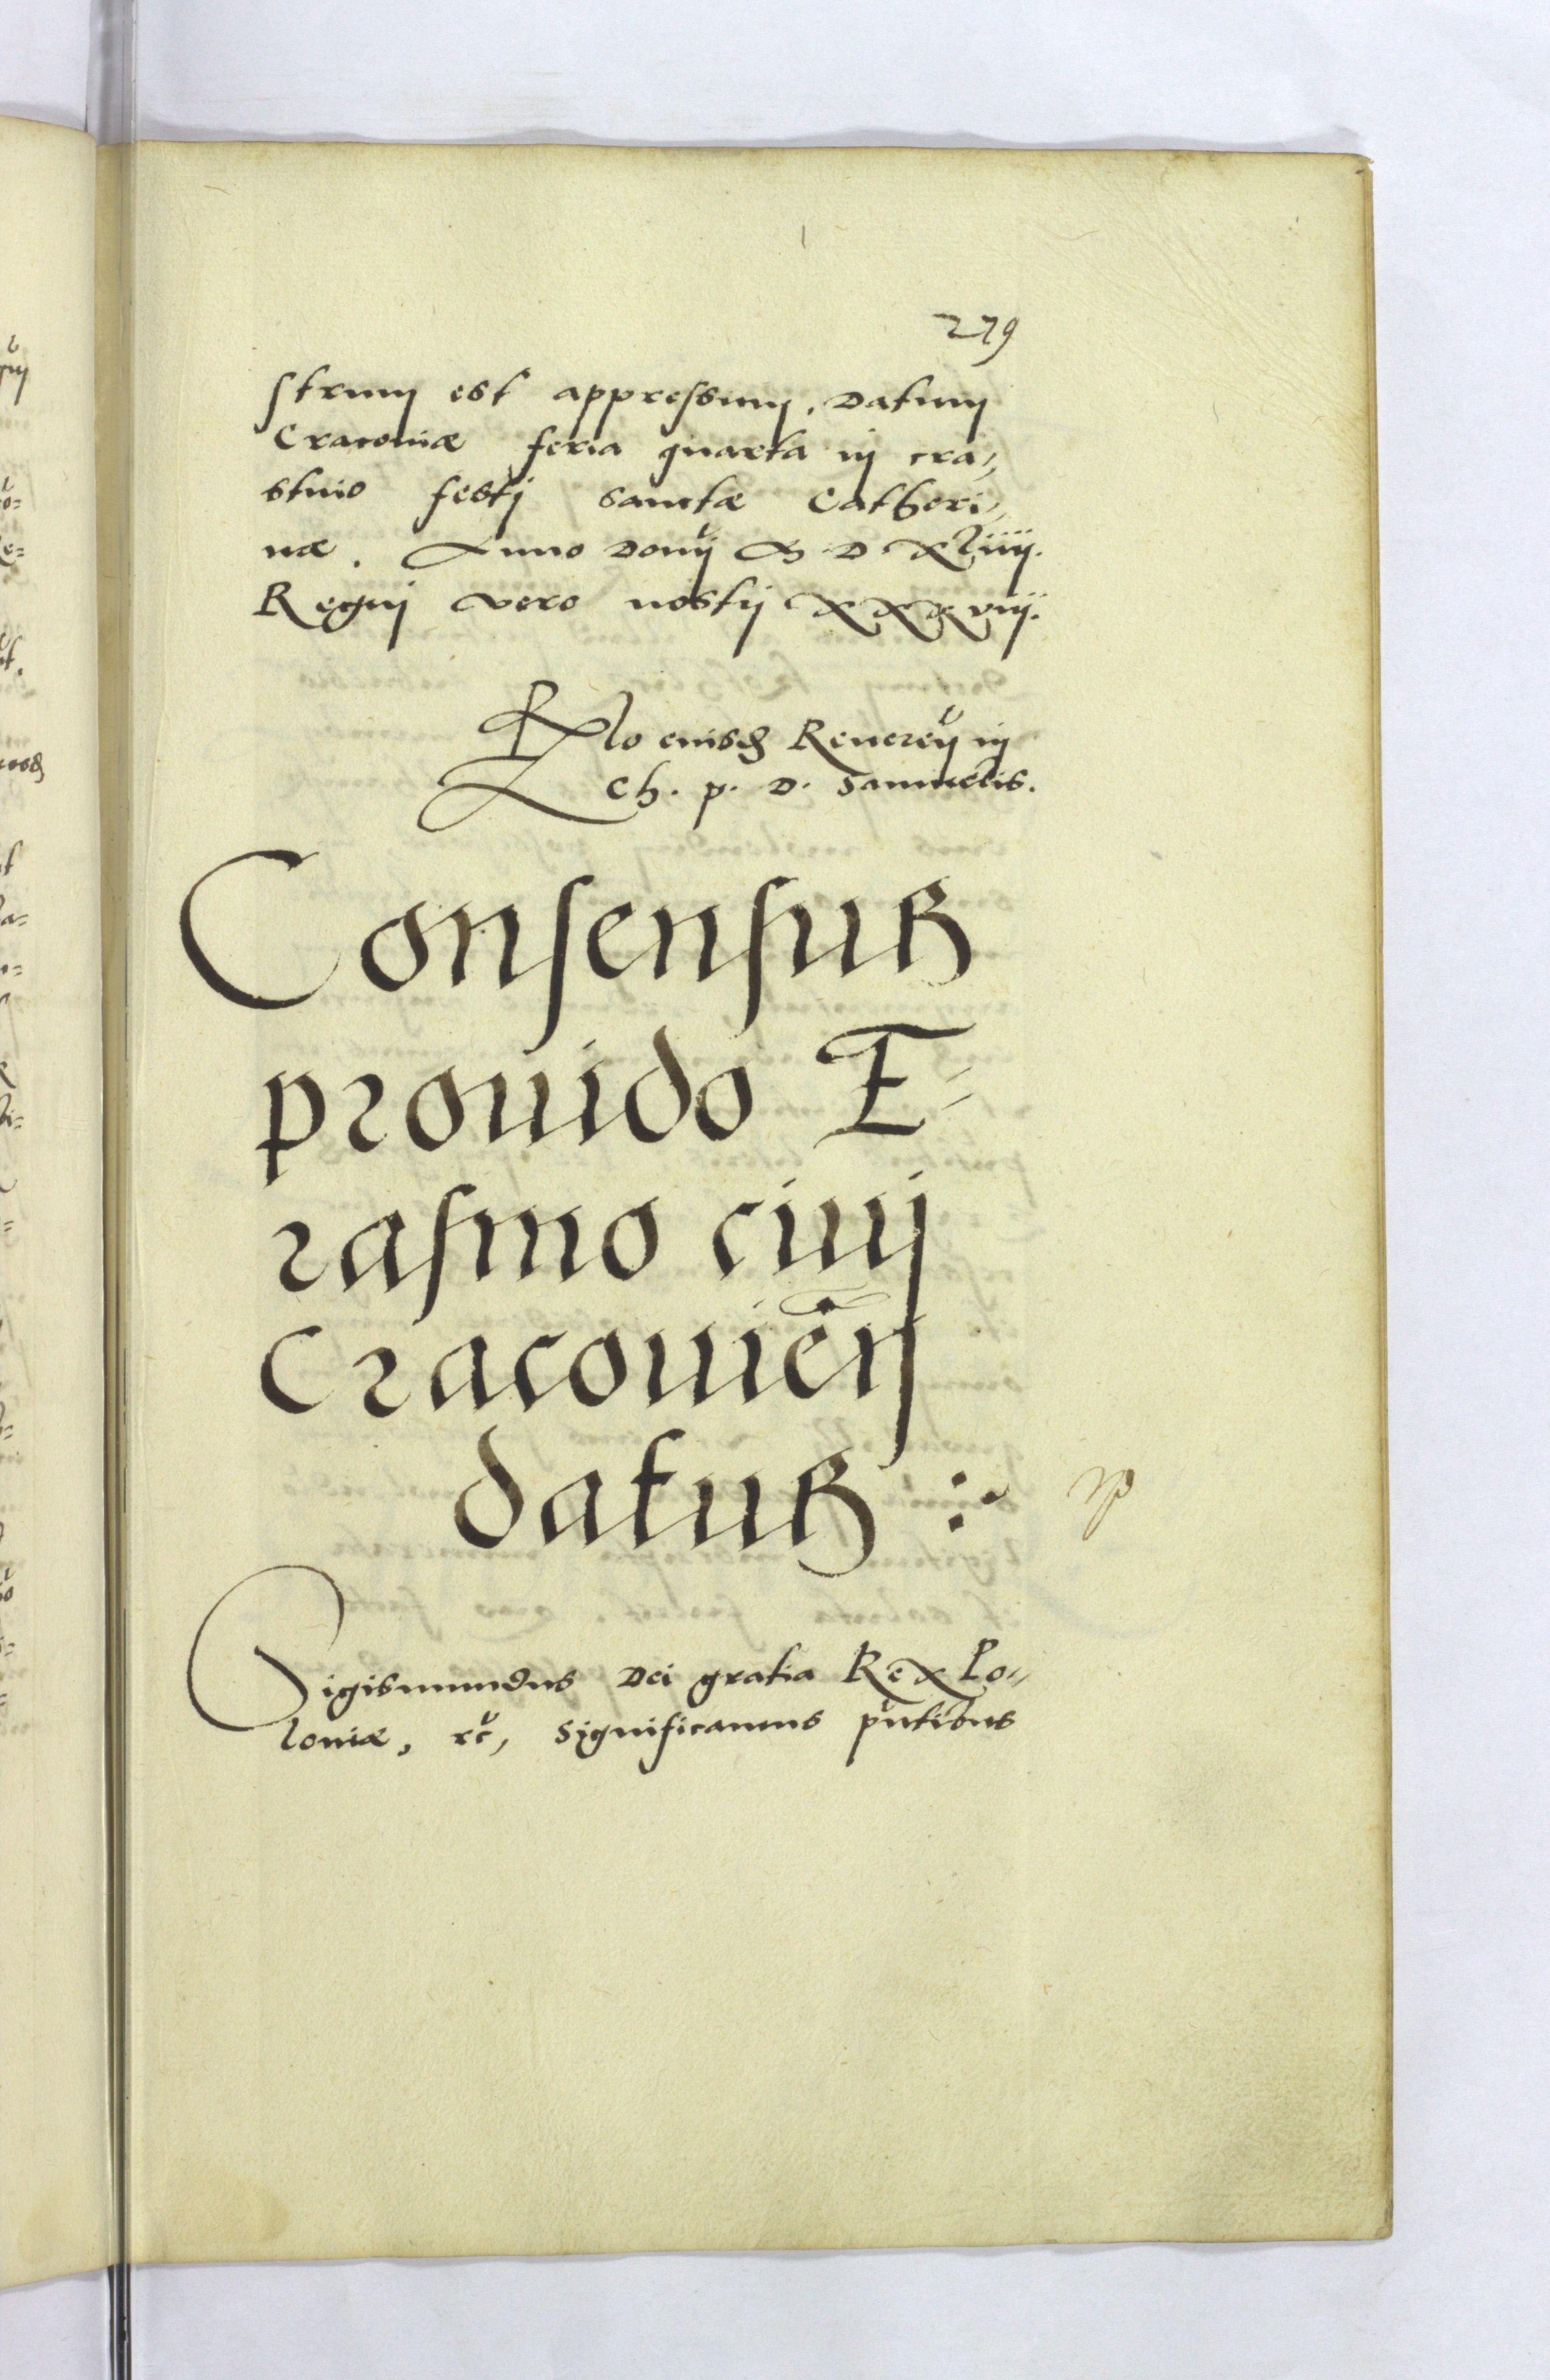 279
strum est appressum. Datum
Cracoviæ feria quarta in cra=
stino festi sanctae Catheri=
næ. Anno Domi M D Xliiij.
Regni vero nostri XXXviij.
Rlo eiusd Reueren in
Ch. p. D. Samuelis.
Consensus
prouido E=
rasmo ciui
Cracouien
datus :~
Sigismundus Dei gratia Rex Po=
loniæ, rc, Significamus pntibus